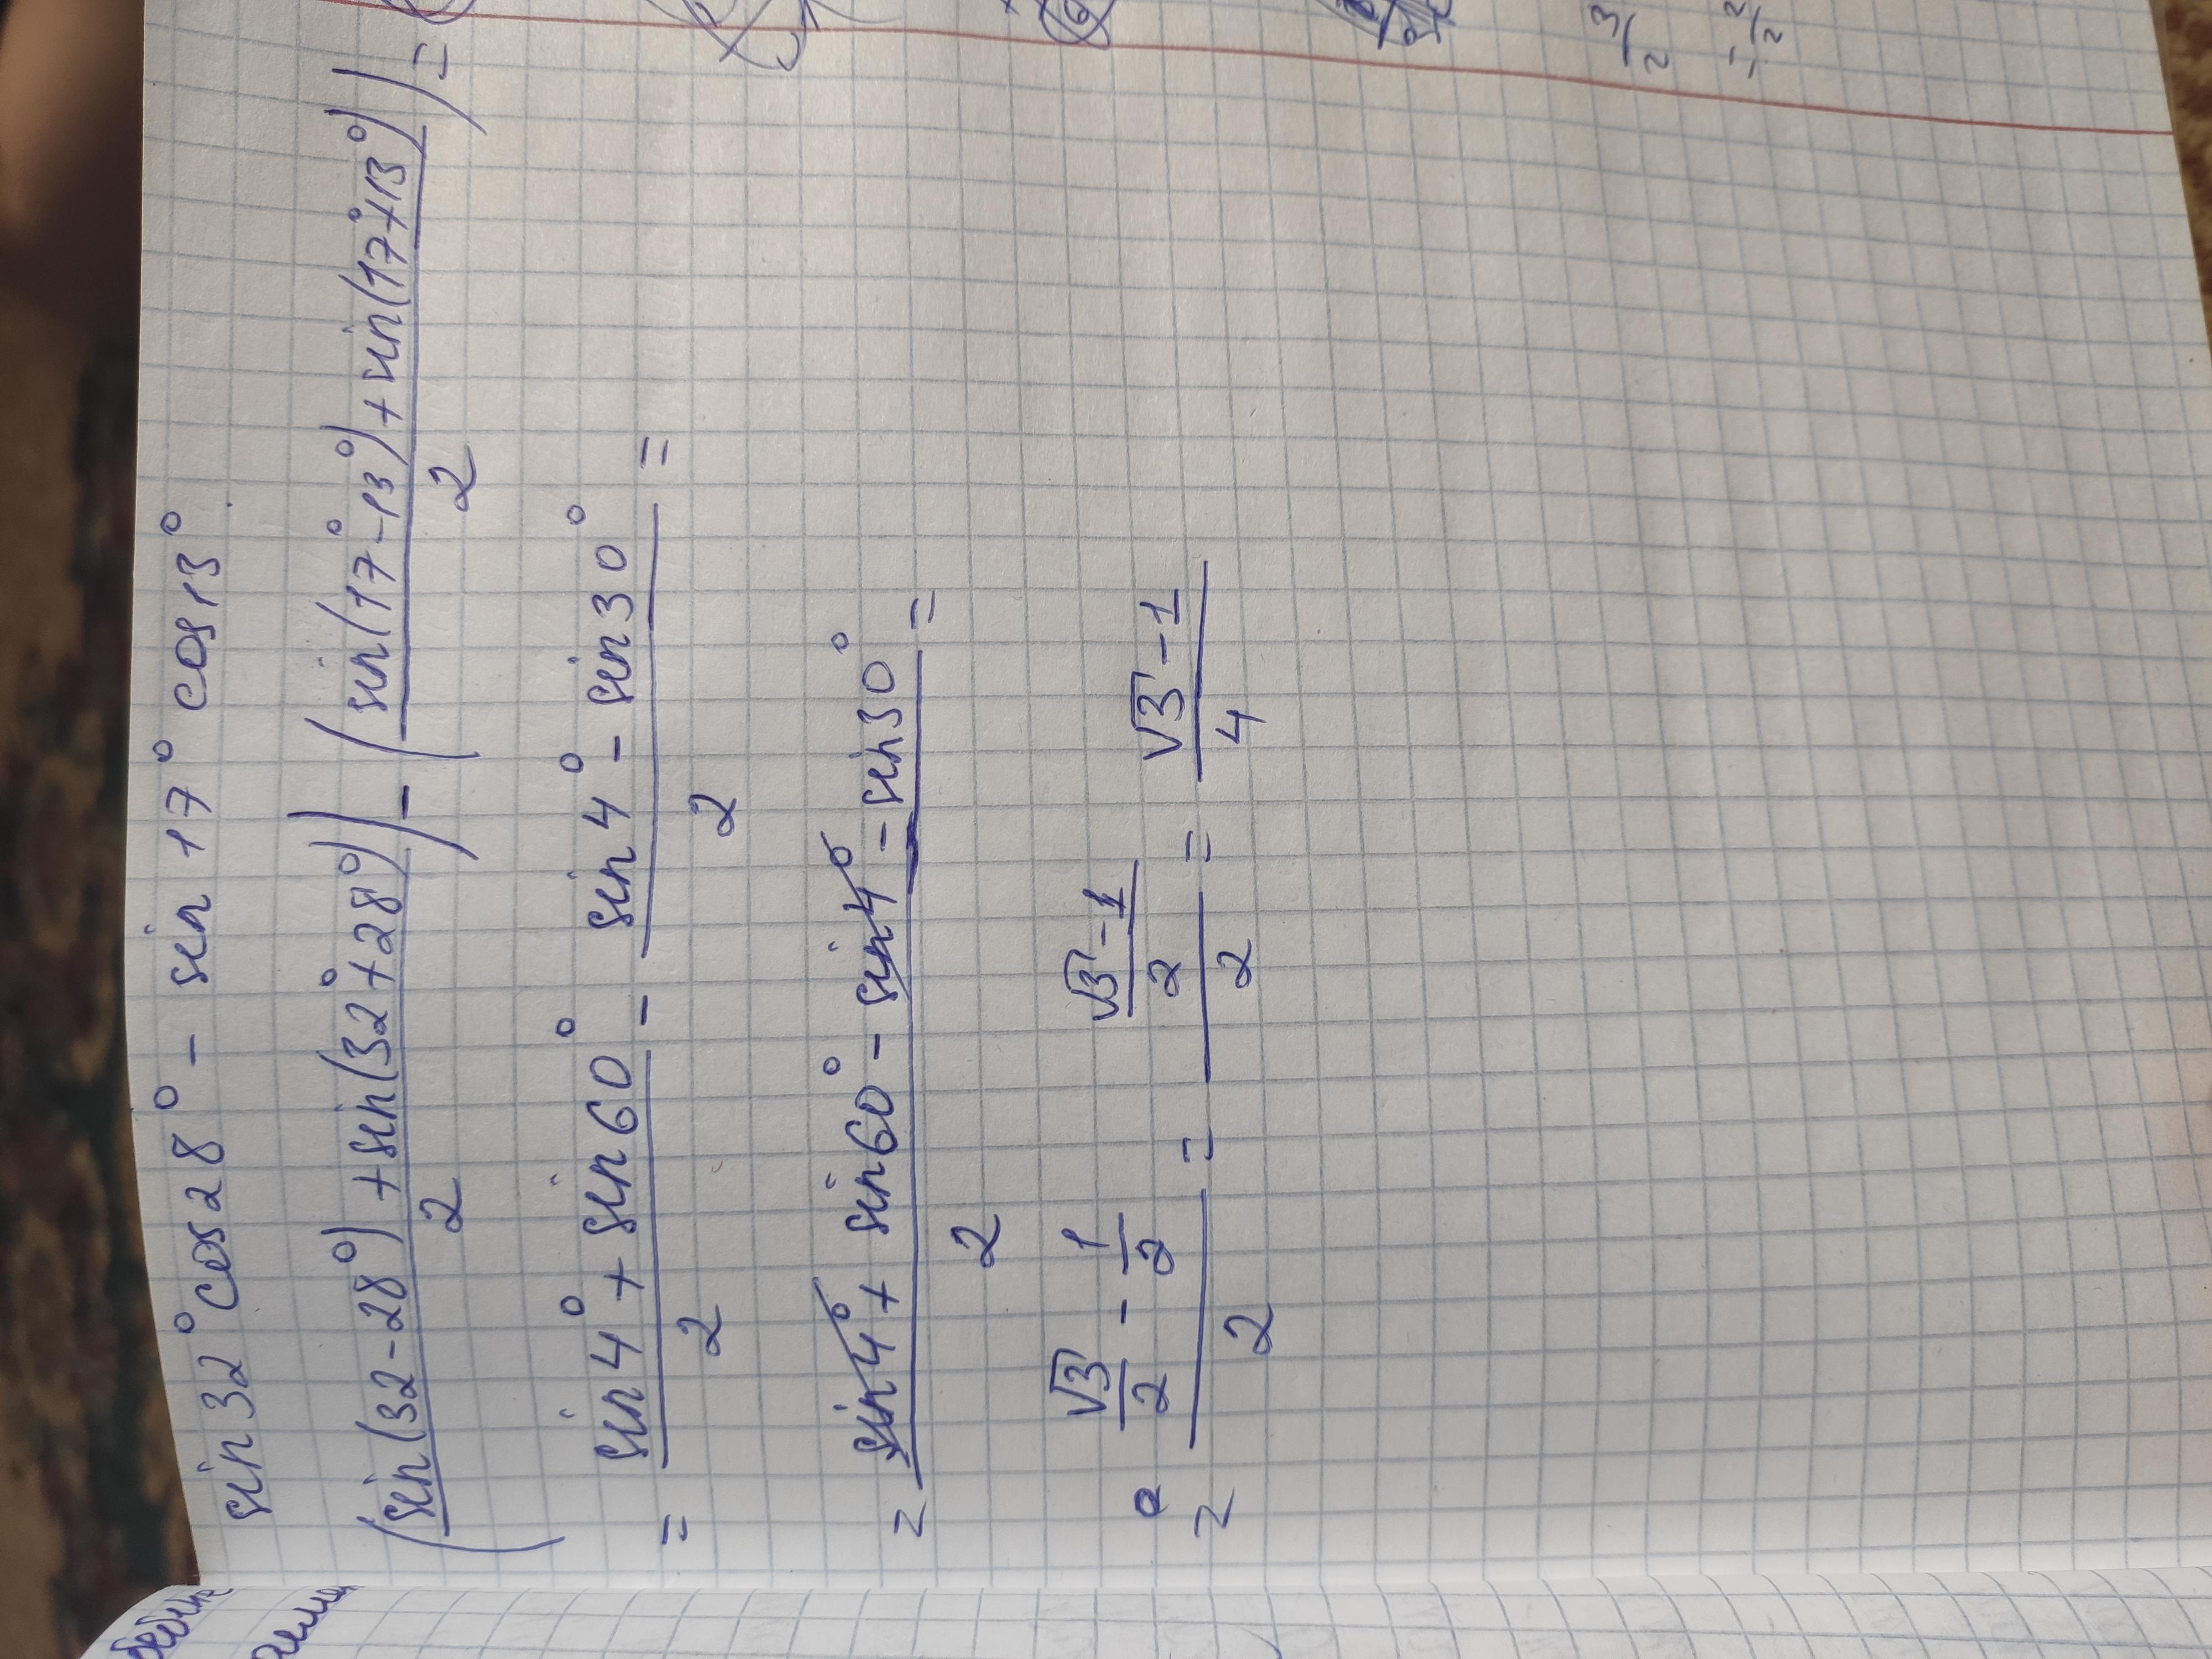 sin32° cos28° - sin17° cos13°
(sin(32-28°) + sin(32°+28°)/2) - (sin(17°-13°) + sin(17°+13°)/2) =
= sin4° + sin60°/2 - sin4° - sin30°/2 =
= sin4° + sin60° - sin4° - sin30°/2 =
= √3/2 - 1/2 / 2 = √3-1/2 / 2 = √3-1/4